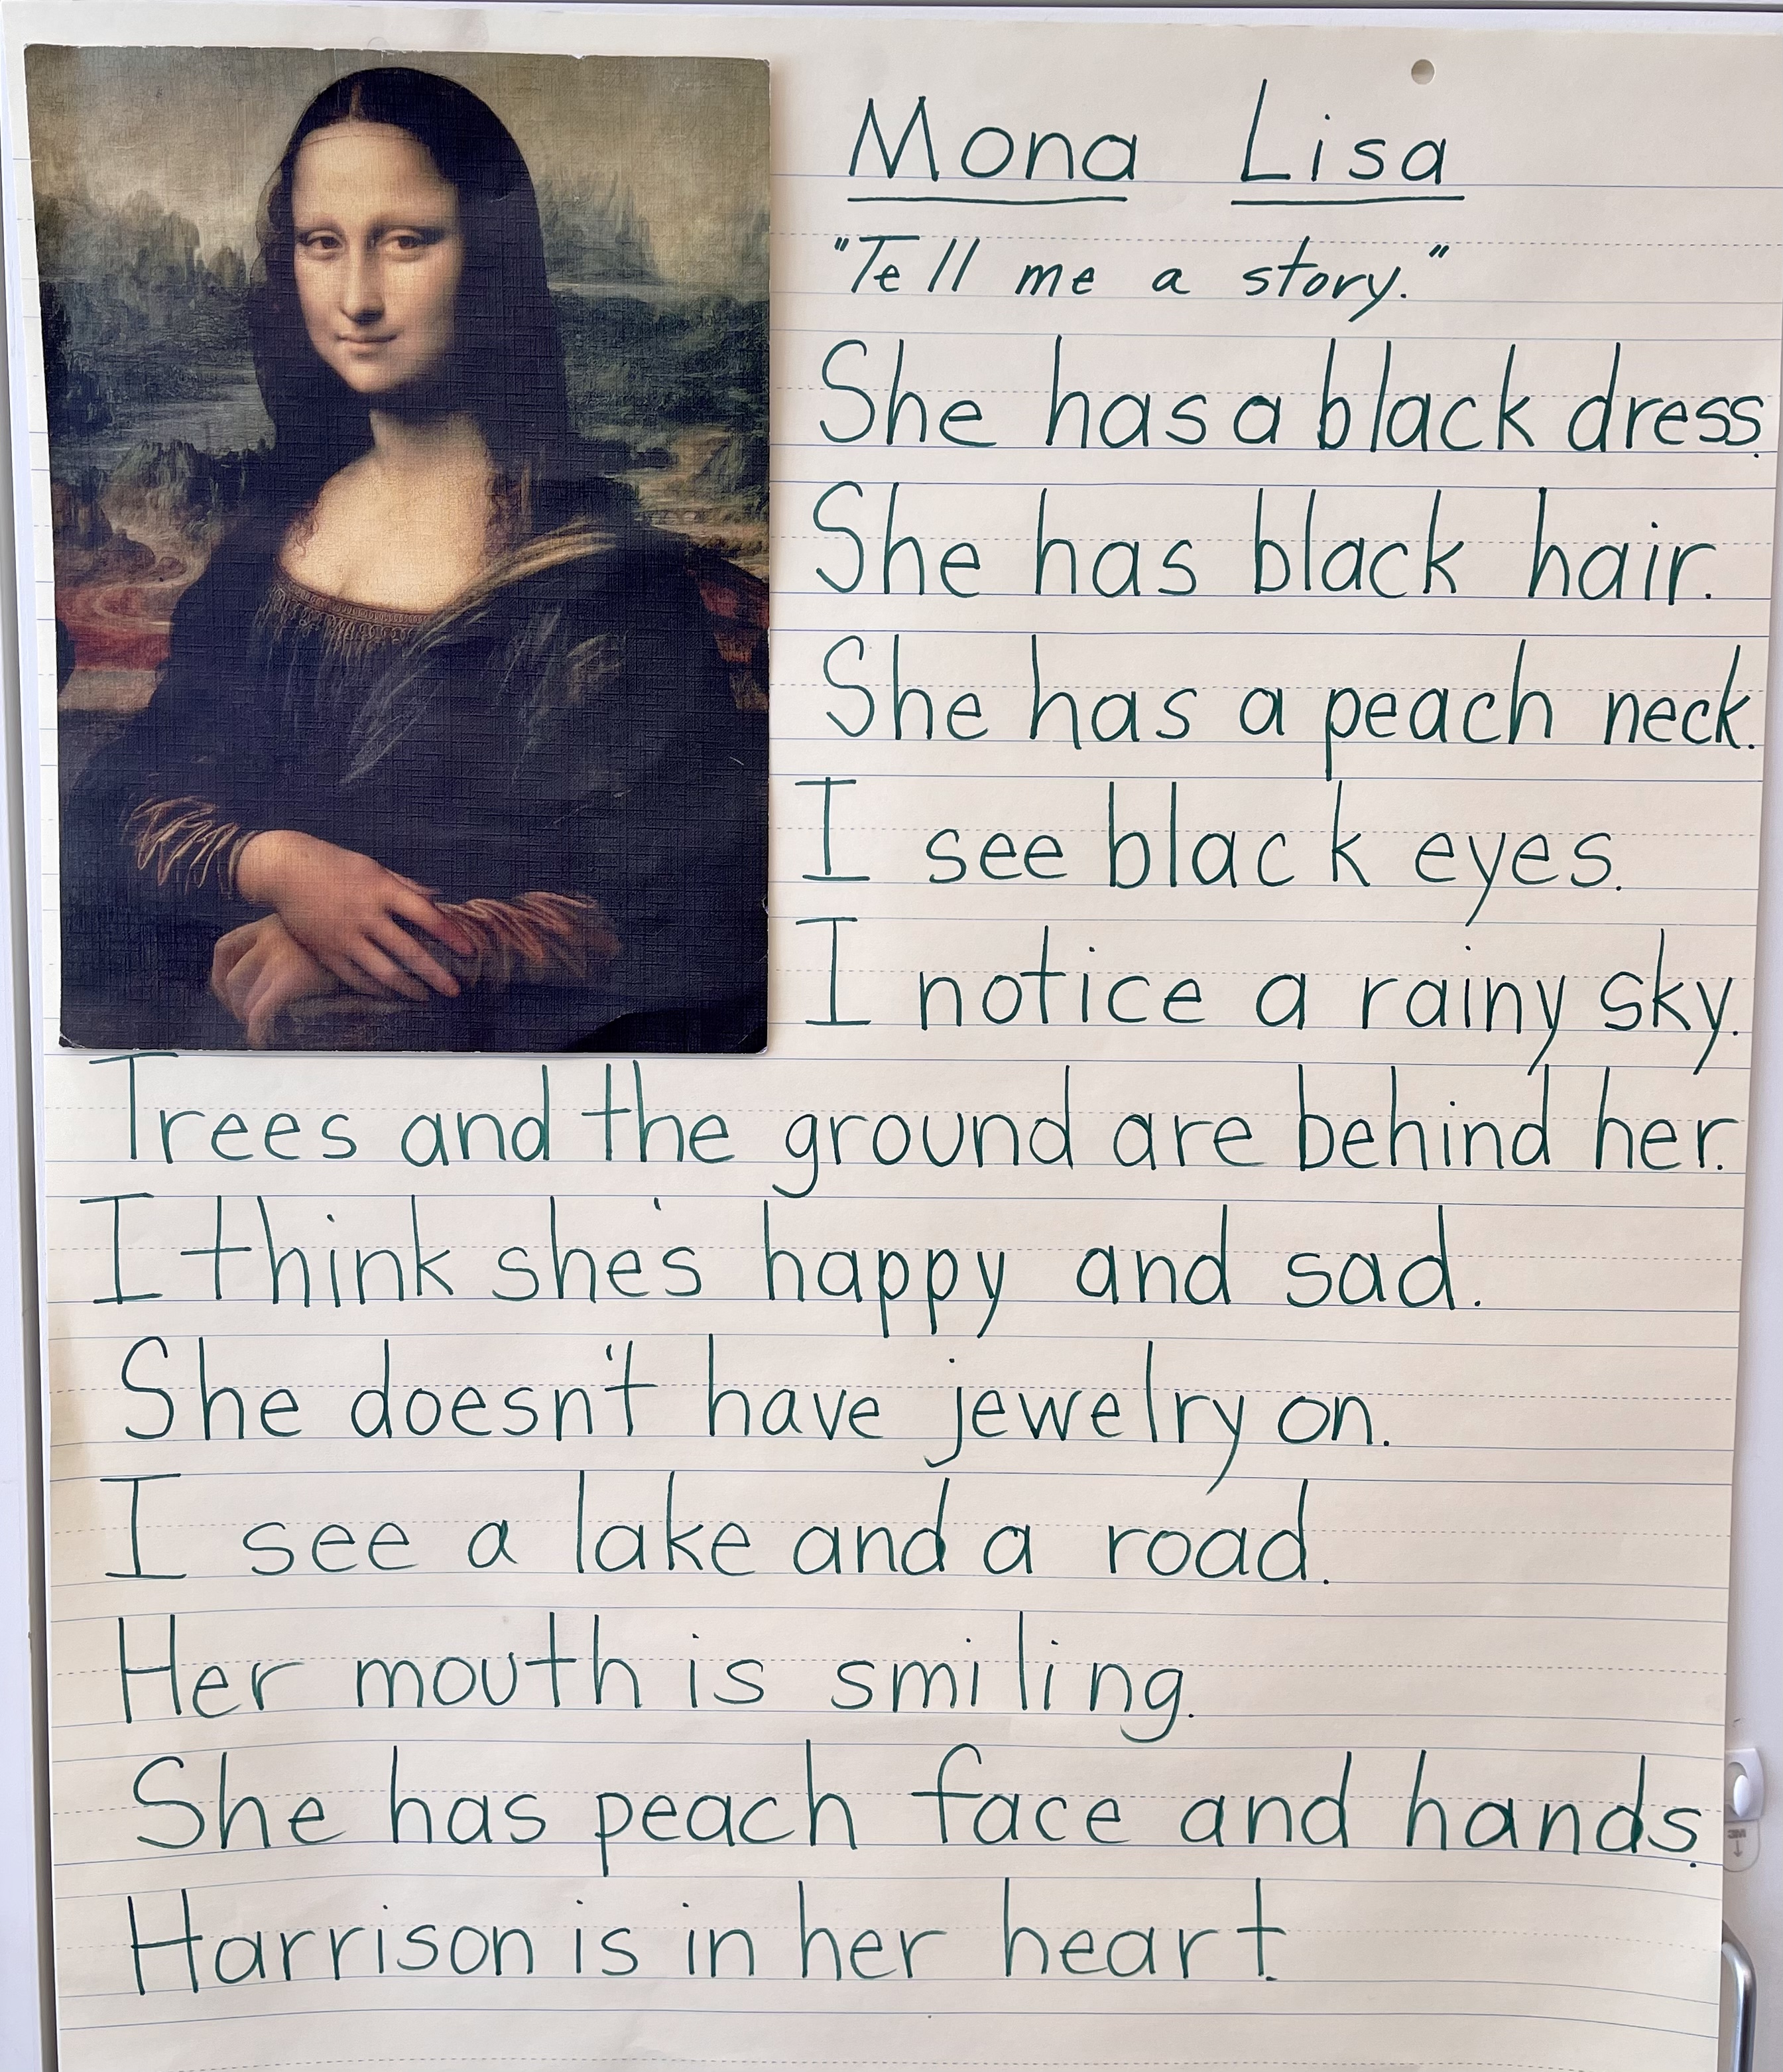 Mona Lisa
"Tell me a story."
She has a black dress.
She has black hair.
She has a peach neck.
I see black eyes.
I notice a rainy sky.
Trees and the ground are behind her.
I think she's happy and sad.
She doesn't have jewelry on.
I see a lake and a road.
Her mouth is smiling.
She has peach face and hands.
Harrison is in her heart.